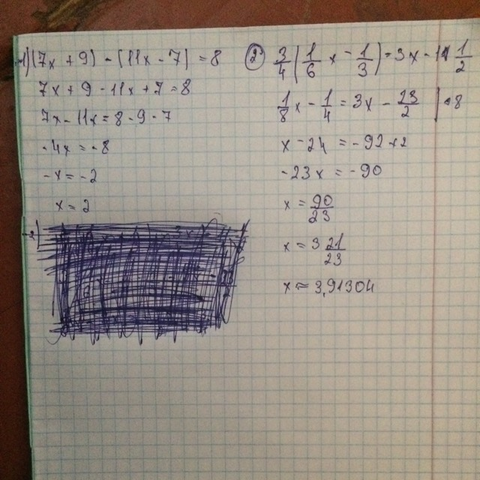 1) (7x + 9) - (11x - 7) = 8
7x + 9 - 11x + 7 = 8
7x - 11x = 8 - 9 - 7
-4x = -8
-x = -2
x = 2
2) 3/4 (1/6 x - 1/3) = 3x - 11 1/2
1/8 x - 1/4 = 3x - 23/2 | ·8
x - 24 = -92 + 2
-23x = -90
x = 90/23
x = 3 21/23
x ≈ 3,91304